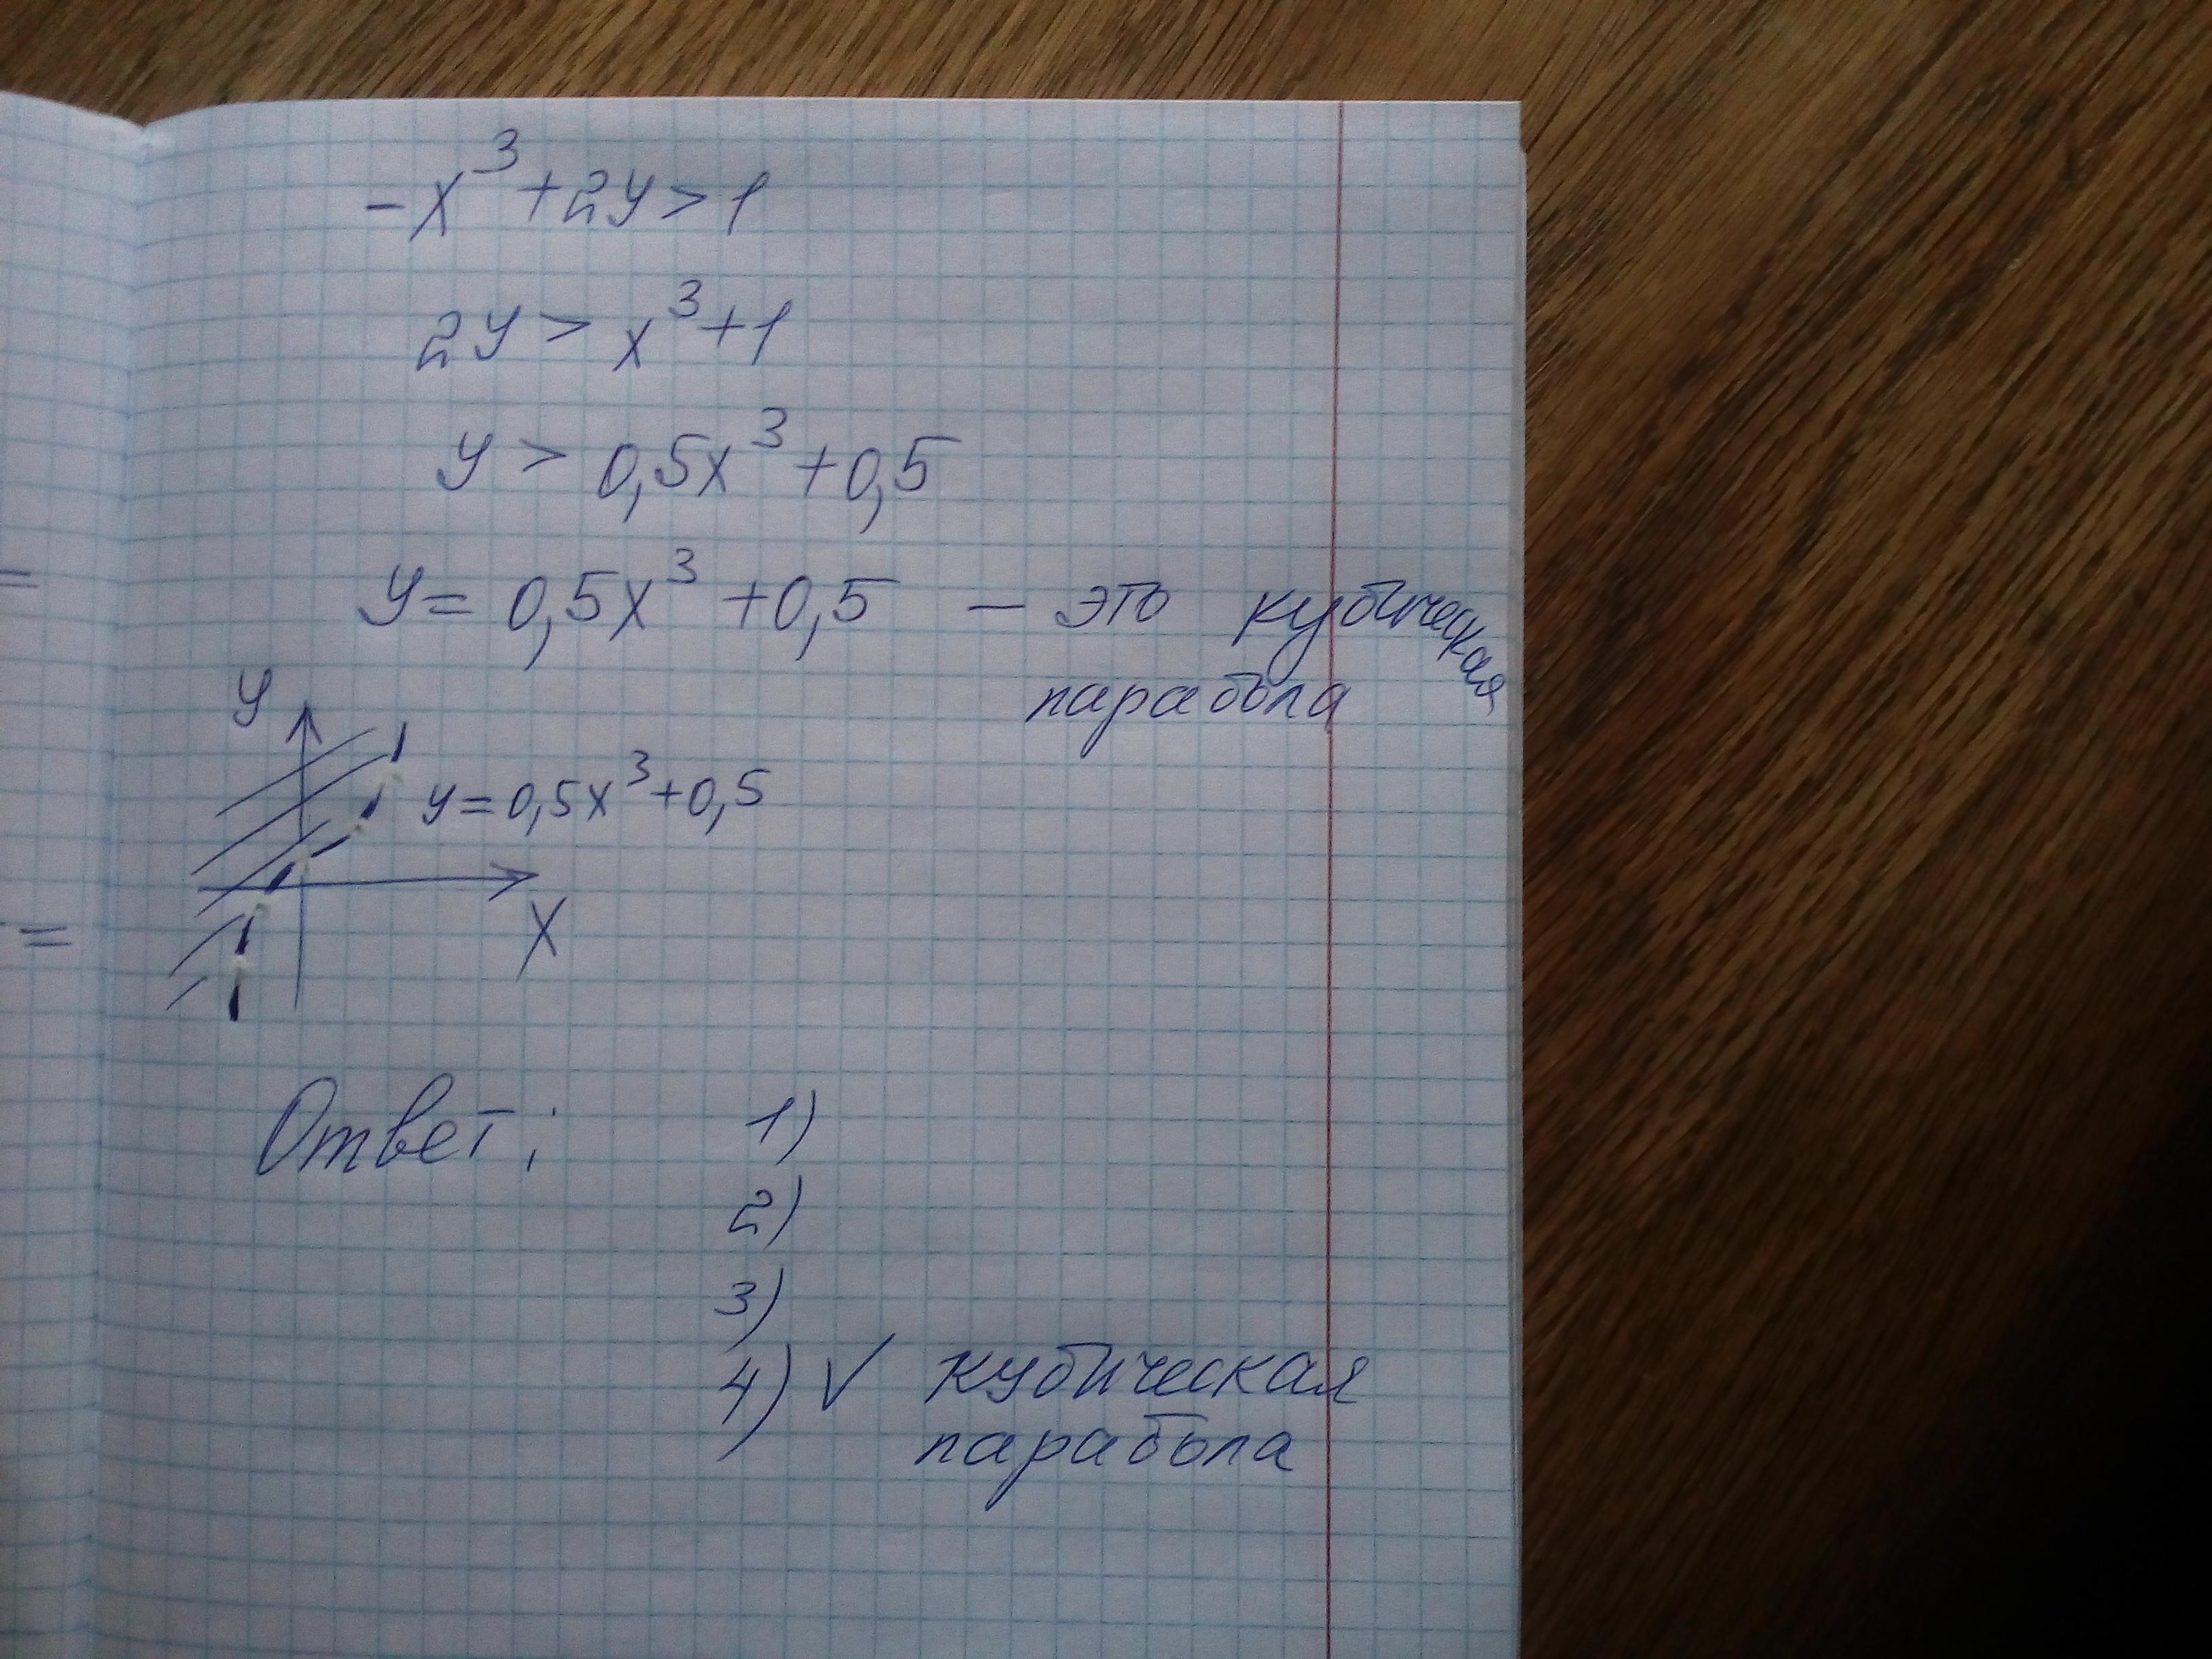 -x³+2y>1
2y > x³+1
y > 0,5x³+0,5
y= 0,5x³ +0,5 – это кубическая
парабола
y
y=0,5x³+0,5
x
=
Ответ:
1)
2)
3)
4) ✓ кубическая
парабола
=